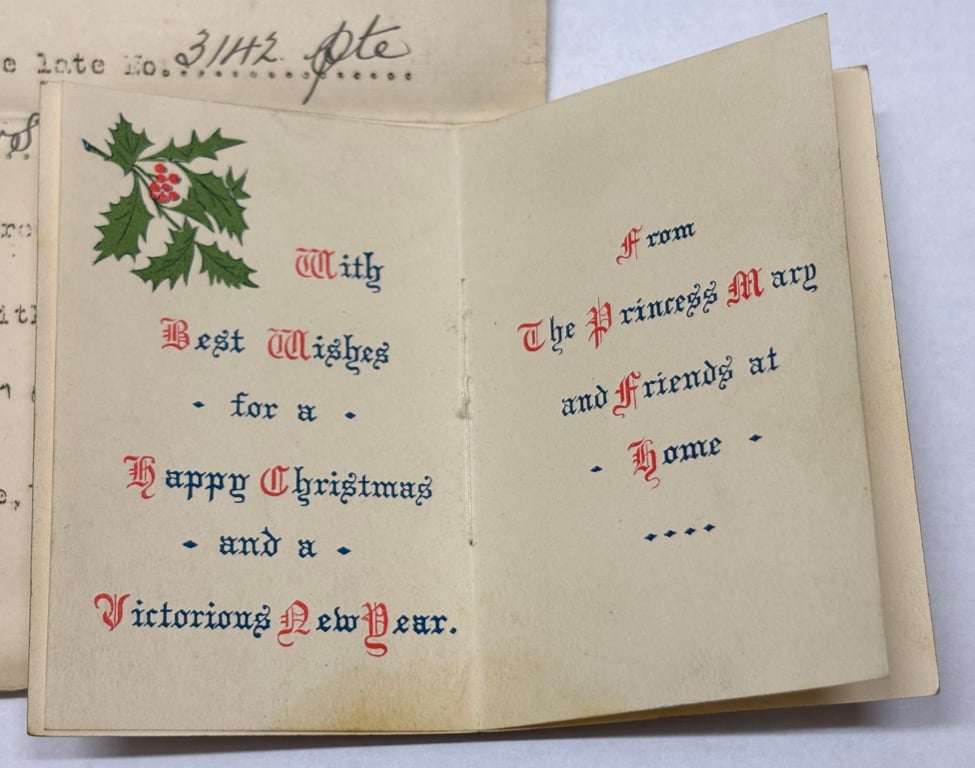 e late No. 3142. Pte
With
Best Wishes
- for a -
Happy Christmas
- and a -
Victorious New Year.
From
The Princess Mary
and Friends at
- Home -